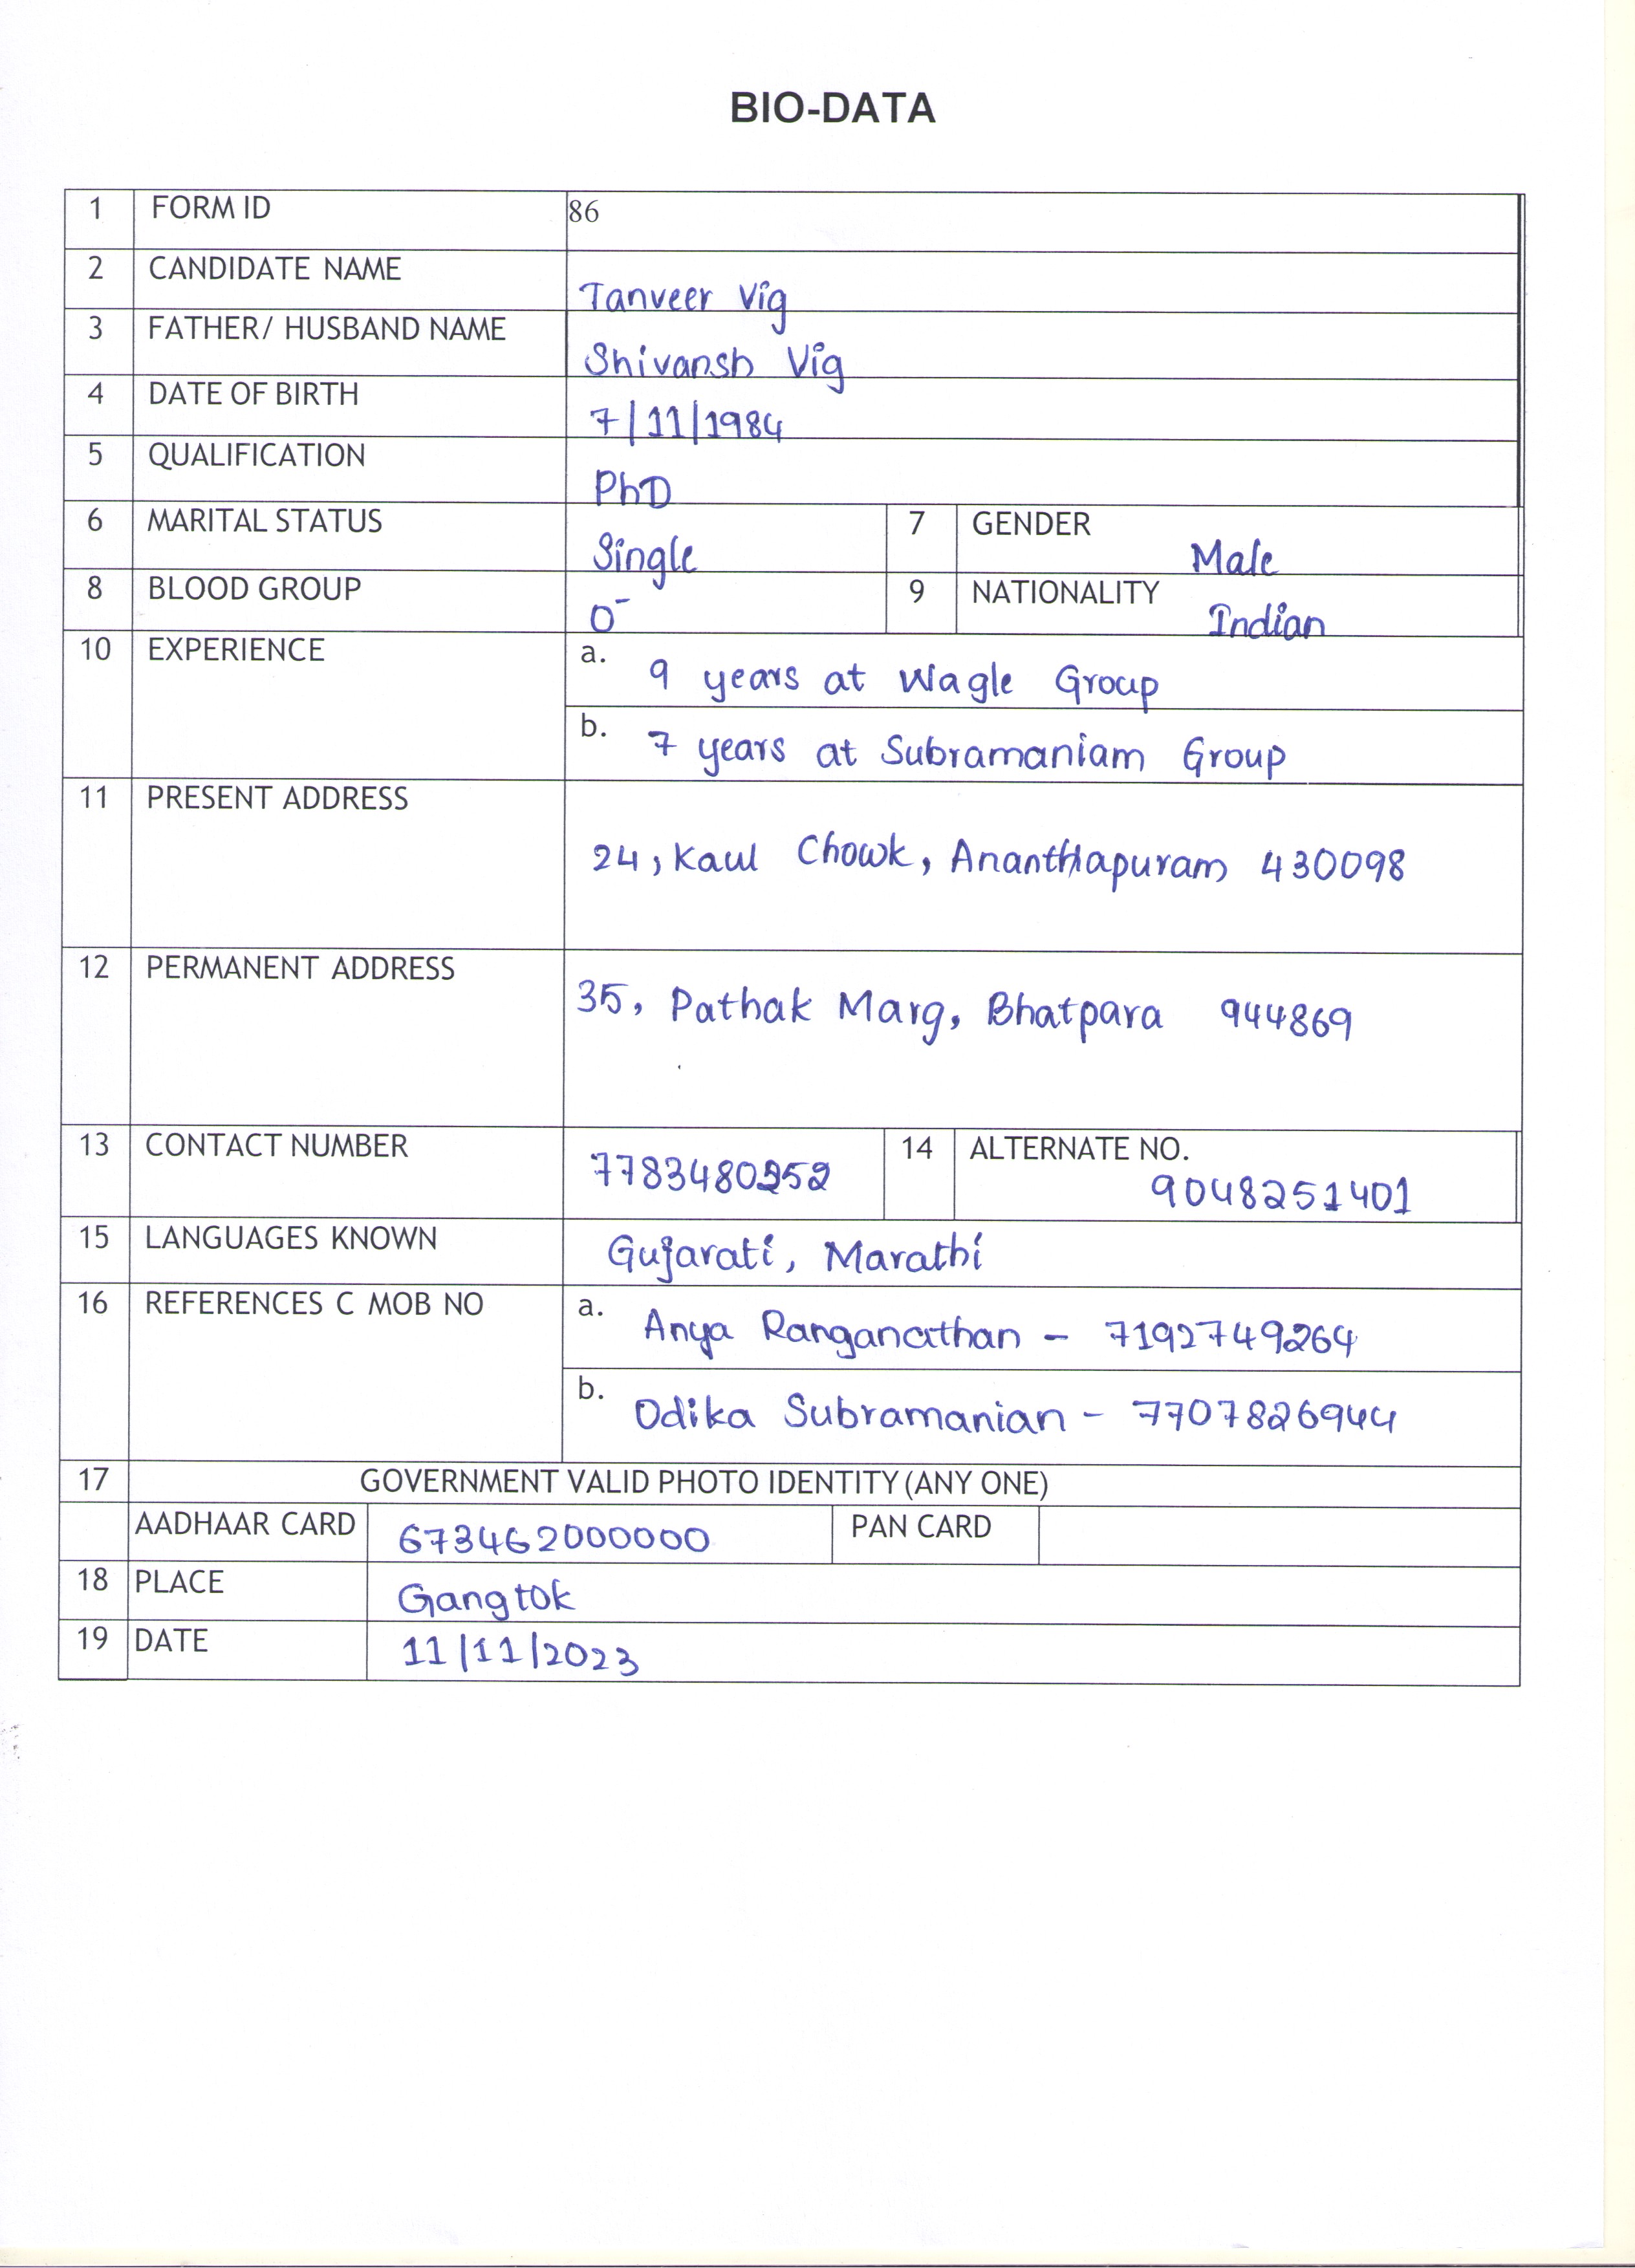 BIO-DATA
1 FORM ID 86
2 CANDIDATE NAME Tanveer Vig
3 FATHER/ HUSBAND NAME Shivansh Vig
4 DATE OF BIRTH 7/11/1984
5 QUALIFICATION PhD
6 MARITAL STATUS Single 7 GENDER Male
8 BLOOD GROUP O- 9 NATIONALITY Indian
10 EXPERIENCE a. 9 years at Wagle Group
b. 7 years at Subramaniam Group
11 PRESENT ADDRESS 24, Kaul Chowk, Ananthapuram 430098
12 PERMANENT ADDRESS 35, Pathak Marg, Bhatpara 944869
13 CONTACT NUMBER 14 ALTERNATE NO. 9048251401
15 LANGUAGES KNOWN Gujarati, Marathi
16 REFERENCES C MOB NO a. Anya Ranganathan - 7192749264
b. Odika Subramanian - 7707826944
17 GOVERNMENT VALID PHOTO IDENTITY (ANY ONE)
AADHAAR CARD 673462000000 PAN CARD
18 PLACE Gangtok
19 DATE 11/11/2023